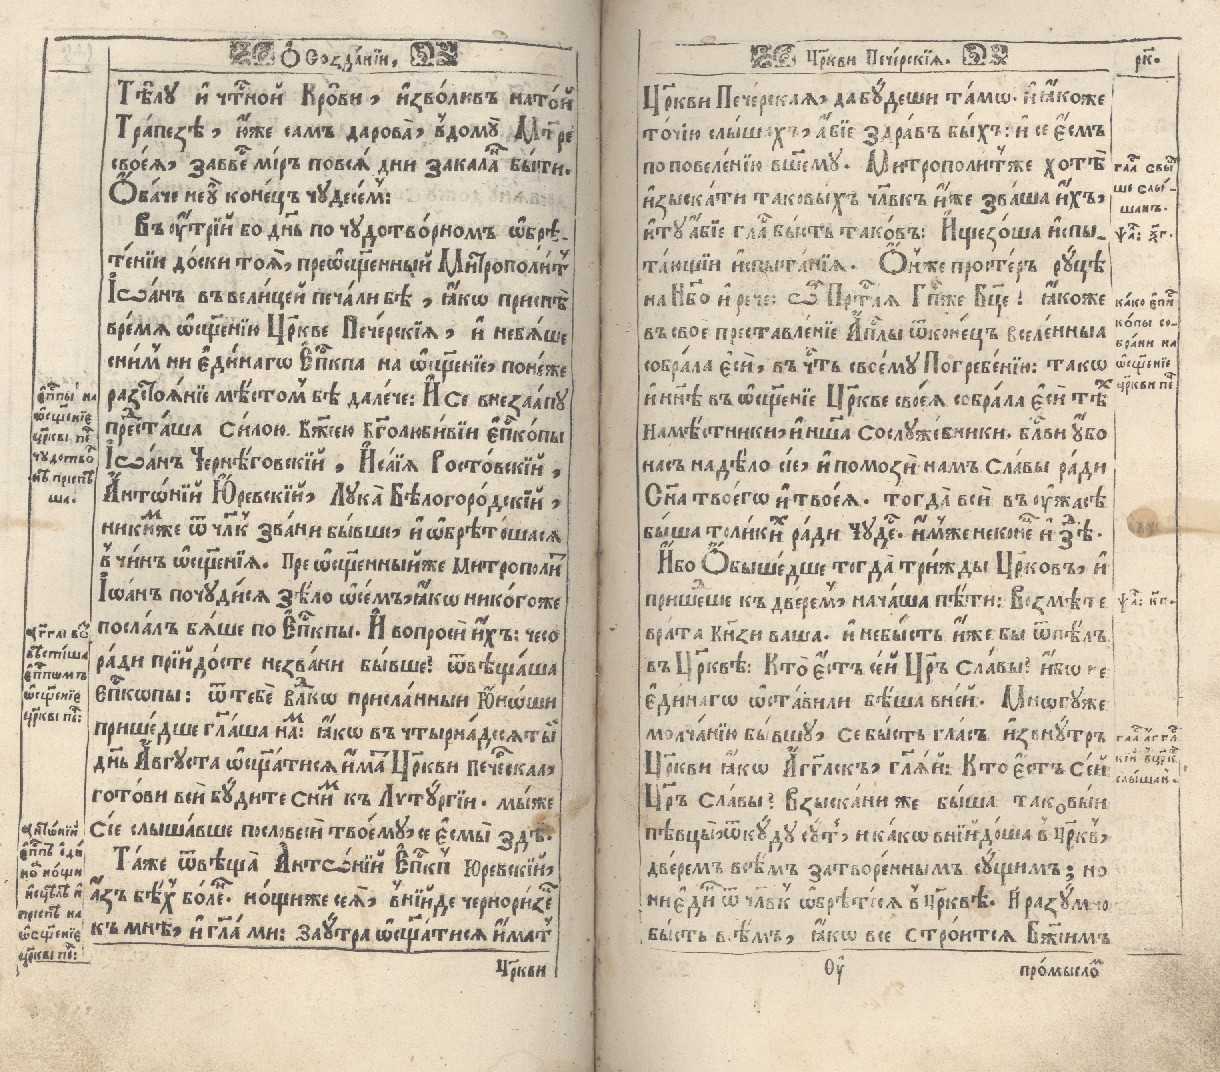 Ѽ Созда́нїи,
Тѣ́лу и҆ чтⷭ҇ной Кро́ви, и҆зво́ливъ на то́й
Тра́пезѣ, ю҆́же самъ дарова̀, в̾дому̀ Мт҃ре
своеѧ̀, за вве́ мі́ръ по всѧ̀ дни закала́нⸯ бы́ти.
Ѻ҆ба́че не у҆̀ коне́цъ чудесе́мъ:
Въ ѹ҆́трїй бо дн҃ь по чудотво́рномъ ѡ҆брѣ́-
те́нїи до́ски тоѧ̀, преѡ҆сщ҃е́нный Митрополи́тъ
І҆ѡа́нъ въ вели́цей печа́ли бѣ̀, ꙗ҆́кѡ приспѣ̀
вре́мѧ ѡ҆сщ҃е́нїю Цр҃кве Пече́рскїѧ, и҆ не бѧ́ше
сни́мъ ни є҆ди́нагѡ Є҆пⷭ҇кпа на ѡ҆сщ҃е́нїе, поне́же
разстоѧ́нїе мѣ́стомъ бѣ̀ дале́че: И҆ се внеза́апу
предста́ша си́лою Бж҃їею Бг҃олюби́вїи Є҆пⷭ҇копы
І҆ѡа́нъ Черне́говскїй, И҆са́їѧ Росто́вскїй,
А҆нто́нїй Ю҆́ревскїй, Лука̀ Бѣлогоро́дскїй,
ники́мже ѿ чл҃къ зва́ни бы́вше, и҆ ѡ҆брѣто́шасѧ
в̾ чи́нъ ѡ҆сщ҃е́нїѧ. Преѡ҆сщ҃е́нный же Митрополи́тъ
І҆ѡа́нъ почуди́сѧ зѣ́ло ѡ҆ се́мъ, ꙗ҆́кѡ никого́же
посла́лъ бѧ́ше по Є҆пⷭ҇кпы. И҆ вопросѝ и҆́хъ: чесо̀
ра́ди прїйдо́сте незва́ни бы́вше? ѿвѣща́ша
Є҆пⷭ҇кѡпы: ѿ тебѐ влⷣкѡ при́сланныи Ю҆́нѡши
прише́дше гл҃а́ша на́мъ: ꙗ҆́кѡ въ чтырна́десѧтый
дн҃ь А҆́вгуста ѡ҆сщ҃а́тисѧ и҆́мать Цр҃кви Пече́рскаѧ,
гото́ви всѝ бу́дите сни́мъ къ Лѷту́ргїи. мы́ же
сїѐ слы́шавше по словесѝ твоему̀, се є҆смы̀ здѣ̀.
Та́же ѿвѣща̀ А҆нто́нїй Є҆пⷭ҇кпъ Ю҆́ревскїй,
а҆́зъ бѣ́хъ боле́нъ. но́щи же сеѧ̀, вни́йде черноризе́цъ
къ мнѣ̀, и҆ гл҃а ми: зау́тра ѡ҆сщ҃а́тисѧ и҆́мать
Цр҃кви
є҆пⷭ҇пы на
ѡ҆сщ҃е́нїе
цр҃кві пе́ч
чудотво́
нѣ приспѣ́
ша.
а҆́гг҃лі во
вѣсти́ша
є҆пⷭ҇пѡмъ
ѡ҆сщ҃е́нїе
цр҃кві пе́ч:
ѡ҆сщ҃е́нїе
цр҃кві пе́ч:
Цр҃кви Пече́рскїѧ.
рк҃.
Цр҃кви Пече́рскаѧ, да бу́деши та́мѡ. и҆ ꙗ҆́коже
то́чїю слы́шахъ, а҆́бїе здра́въ бы́хъ: и҆ се є҆́смъ
по повеле́нїю ва́шему. Митрополи́тъ же хотѣ̀
и҆зыска́ти таковы́хъ чл҃вкъ и҆̀же зва́ша и҆́хъ,
и҆ ту̀ а҆́бїе гла́съ бы́сть тако́въ: И҆щезо́ша и҆спы-
та́ющїи и҆спыта́нїѧ. Ѻ҆́нъ же просте́ръ ру́цѣ
на Нб҃о и҆ речѐ: ѽ Прⷭ҇та́ѧ Гпⷭ҇же Бц҃е! ꙗ҆́коже
въ своѐ преставле́нїе А҆пⷭ҇лы ѿ коне́цъ вселе́нныѧ
собра́ла є҆сѝ, въ чⷭ҇ть своему̀ Погребе́нїю: та́кѡ
и҆ нн҃ѣ въ ѡ҆сщ҃е́нїе Цр҃кве своеѧ̀ собра́ла є҆сѝ тѣ́хъ
Намѣ́стники, и҆ на́ша сослуже́бники. бл҃гви у҆̀бо
насъ на дѣ́ло сїѐ, и҆ помозѝ намъ сла́вы ра́ди
Сн҃а твоегѡ̀ и҆ твоеѧ̀. тогда̀ всѝ въ ѹ҆́жасѣ
бы́ша толи́кихъ ра́ди чуде́съ. и҆́мже не коне́цъ и҆ здѣ̀.
И҆́бо Ѻ҆быше́дше тогда̀ три́жды Цр҃ковъ, и҆
прише́дше къ две́ремъ, нача́ша пѣ́ти: Возмѣ́те
врата̀ Кнѧ́зи ва́ша. и҆ не бы́сть и҆́же бы ѿпѣ́лъ
въ Цр҃квѣ: Кто̀ є҆́стъ се́й Цр҃ь сла́вы? и҆́бо не
є҆ди́нагѡ ѡ҆ста́вили бѣ́ша в̾не́й. Мно́гу же
молча́нїю бы́вшу, се бы́сть гла́съ и҆звну́тръ
Цр҃кви ꙗ҆́кѡ А҆́гг҃лскъ, гл҃ѧ́й: Кто̀ є҆́стъ се́й
Цр҃ъ сла́вы? Взыска́ни же бы́ша таковы́и
пѣвцы̀, ѿку́ду су́ть, и ка́кѡ внийдо́ша в̾ Цр҃квъ,
две́ремъ всѣ́мъ затворе́ннымъ су́щимъ; но
ни є҆ди́нъ ѿ чл҃вкъ ѡ҆брѣ́тесѧ в̾ Цр҃квѣ. И҆ разу́мно
бы́сть всѣ́мъ, ꙗ҆́кѡ все стро́итсѧ Бж҃їимъ
Ѹ҆ про́мысломъ
гла́съ свы́
ше слы́-
шанъ.
ѱа҃: ѯ҃г.
ка́ко є҆пⷭ҇
копы со-
бра́ни на
ѡ҆сщ҃е́нїе
цр҃кви пе́ч
ѱа҃: кг҃.
гла́съ а҆́гг҃л
скій в̾ цр҃кв
слы́шанъ.